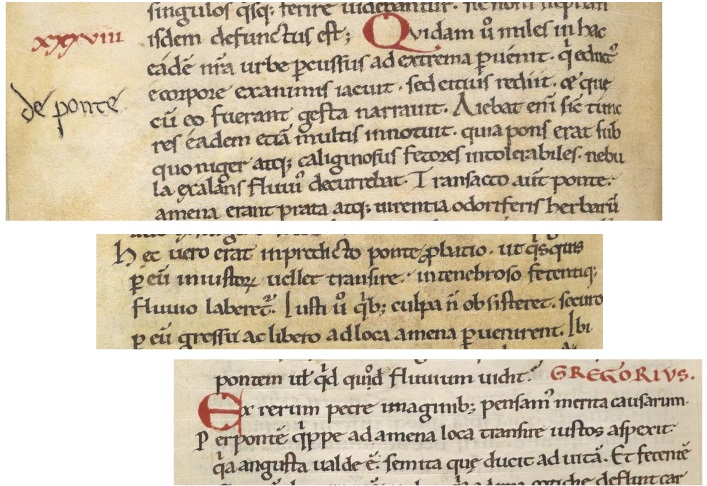 singulos q̄sq; ferire uidebantur.
xxxviii
isdem defunctus est; Quidam ů miles in hac
eadē nr̄a urbe p̄cussus ad extrema p̄uenit. q̇ eductꝰ
de ponte
e corpore exanimis iacuit. sed citius rediit. & que
cū eo fuerant gesta narrauit. Aiebat eni sic tunc
res eadem etiā multis innotuit. quia pons erat sub
quo niger atq; caliginosus fetores intolerabiles nebu
la exalans fluuiꝰ decurrebat. Transacto aūt ponte.
amena erant prata atq; uirentia odoriferis herbarū
hec uero erat in predicto ponte ꝓbatio. ut q̄squis
ꝑ eū iniustoꝝ uellet transire. in tenebroso fetentiq;
fluuio laberet᷑. Iusti ů q̇b; culpa n̄ obsisteret. securo
ꝑ eū gressu ac libero ad loca amena ꝑuenirent. Ibi
pontem uł q̇d quod fluuium uidit. GREGORIVS.
Ex rerum petre imaginib; pensam᷑ merita causarum.
Per pontē q̇ppe ad amena loca transire iustos aspexit.
q̇a angusta ualde ē. semita que ducit ad uitā. Et fetentē